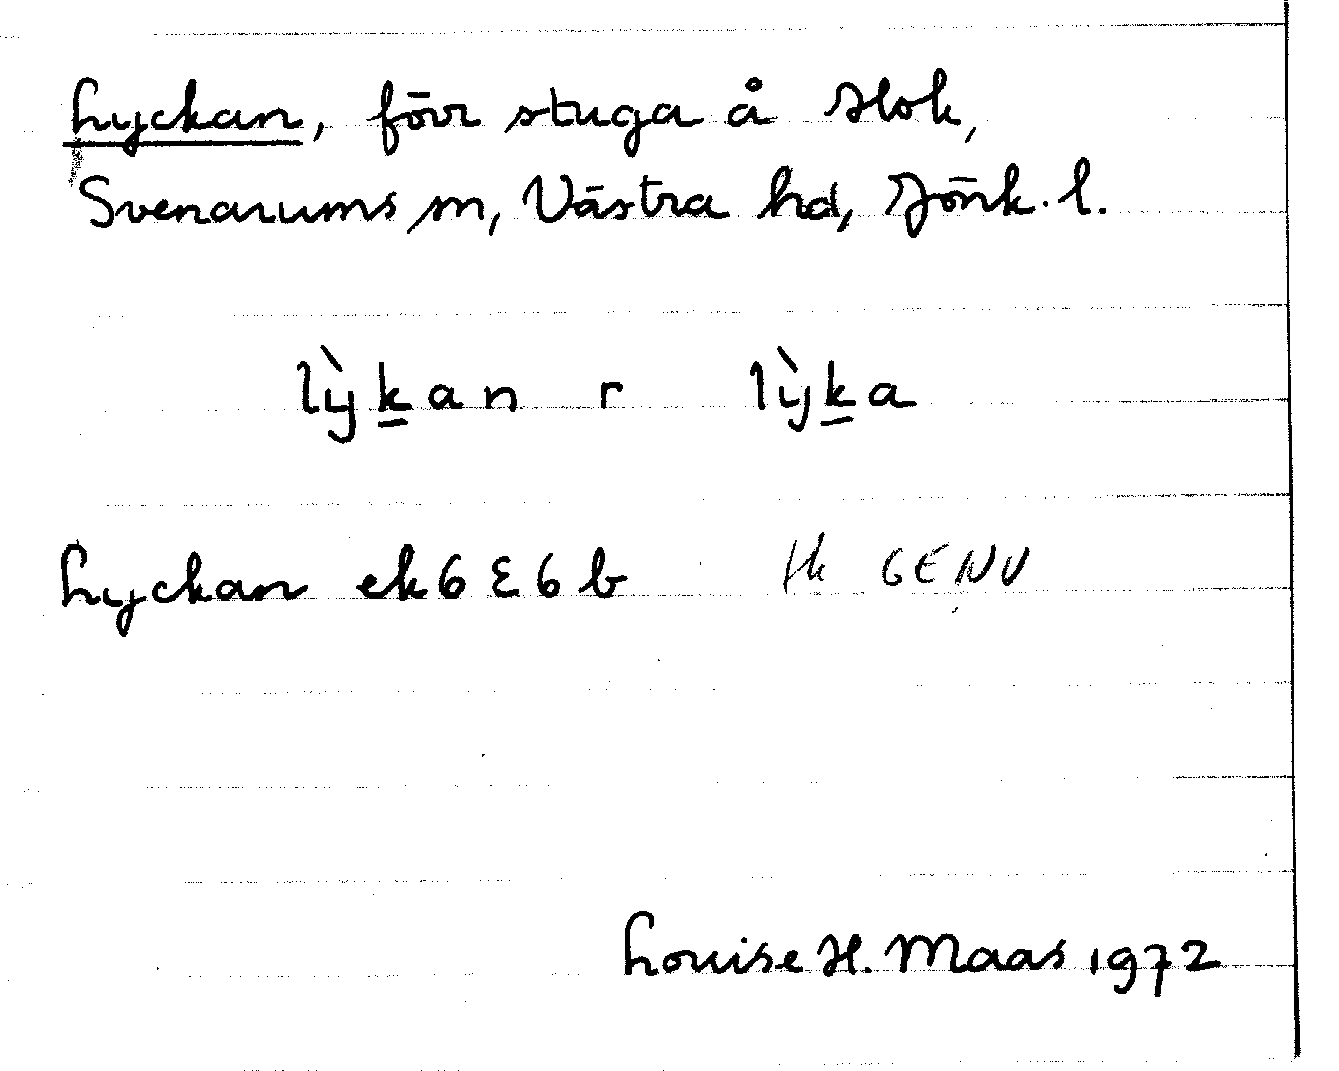 Lyckan, förr stuga å Slok,
Svenarums sn, Västra hd, Jönk. l.
lỳkan r lỳka
Lyckan ek 6 E 6 b fk GENU
Louise H. Maas 1972